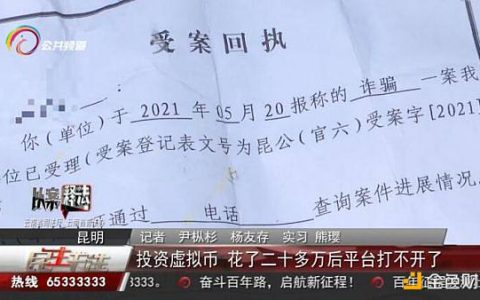 公共频道
受案回执
:
你（单位）于 2021 年 05 月 20 报称的 诈骗 一案我
位已受理（受案登记表文号为昆公（官六）受案字[2021]
通过 电话 查询案件进展情况
从案释法
昆明
记者 尹枞杉 杨友存 实习 熊璎
投资虚拟币 花了二十多万后平台打不开了
热线 65333333
奋斗百年路，启航新征程！
金色财